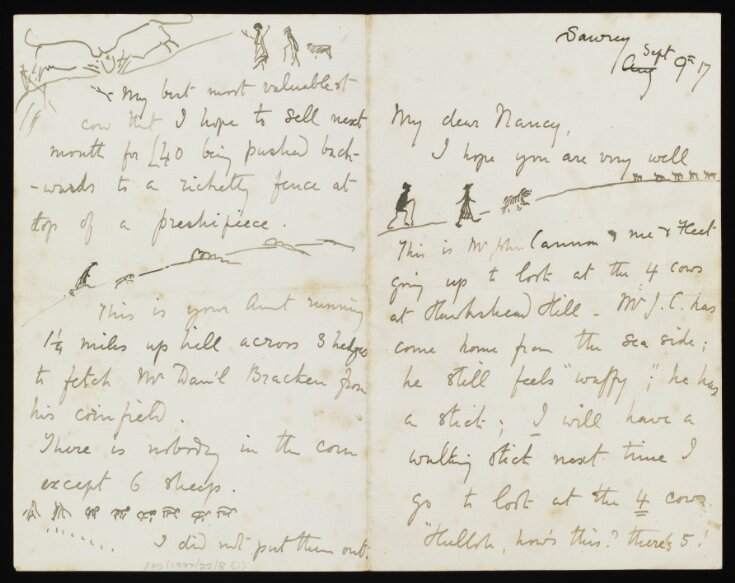 Sawrey
Sept
Aug 9th 17
My dear Nancy,
I hope you are very well
This is Mr John Cannon & me & Fleet
going up to look at the 4 cows
at Hawkshead Hill - Mr J. C. has
come home from the sea side;
he still feels "waffy"; he has
a stick; I will have a
walking stick next time I
go to look at the 4 cows
"Hulloh, how's this? there's 5!
My best most valuablest
cow that I hope to sell next
month for £40 being pushed back-
-wards to a ricketty fence at
top of a preshipiece.
This is your Aunt running
1¼ miles up hill across 3 hedges
to fetch Mr Dan'l Bracken from
his cornfield.
There is nobody in the corn
except 6 sheep.
I did not put them out.